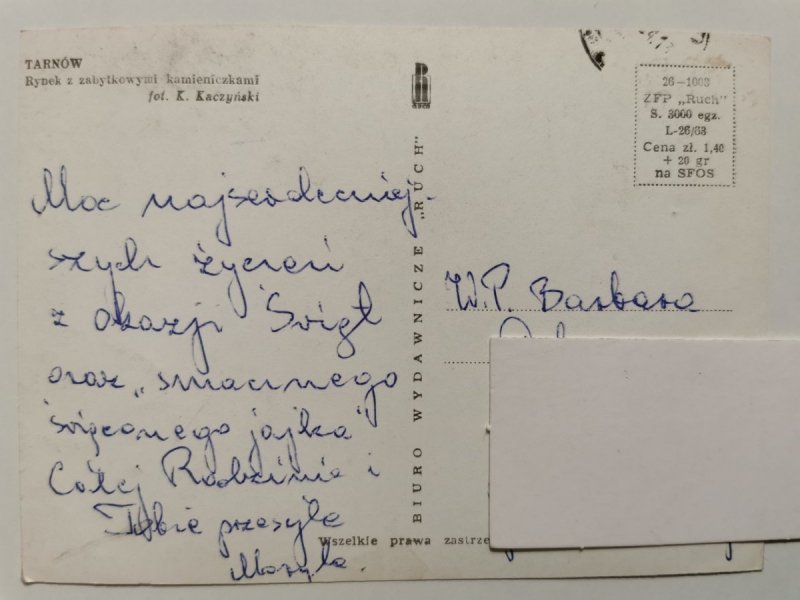 TARNÓW
Rynek z zabytkowymi kamieniczkami
fot. K. Kaczyński
RUCH
26—1003
ZFP „Ruch"
S. 3000 egz.
L-26/63
Cena zł. 1,40
+ 20 gr
na SFOS
BIURO WYDAWNICZE „RUCH"
Moc najserdeczniej-
szych życzeń
z okazji Świąt
oraz „smacznego
święconego jajka"
Całej Rodzinie i
Tobie przesyła
W.P. Barbara
Wszelkie prawa zastrze